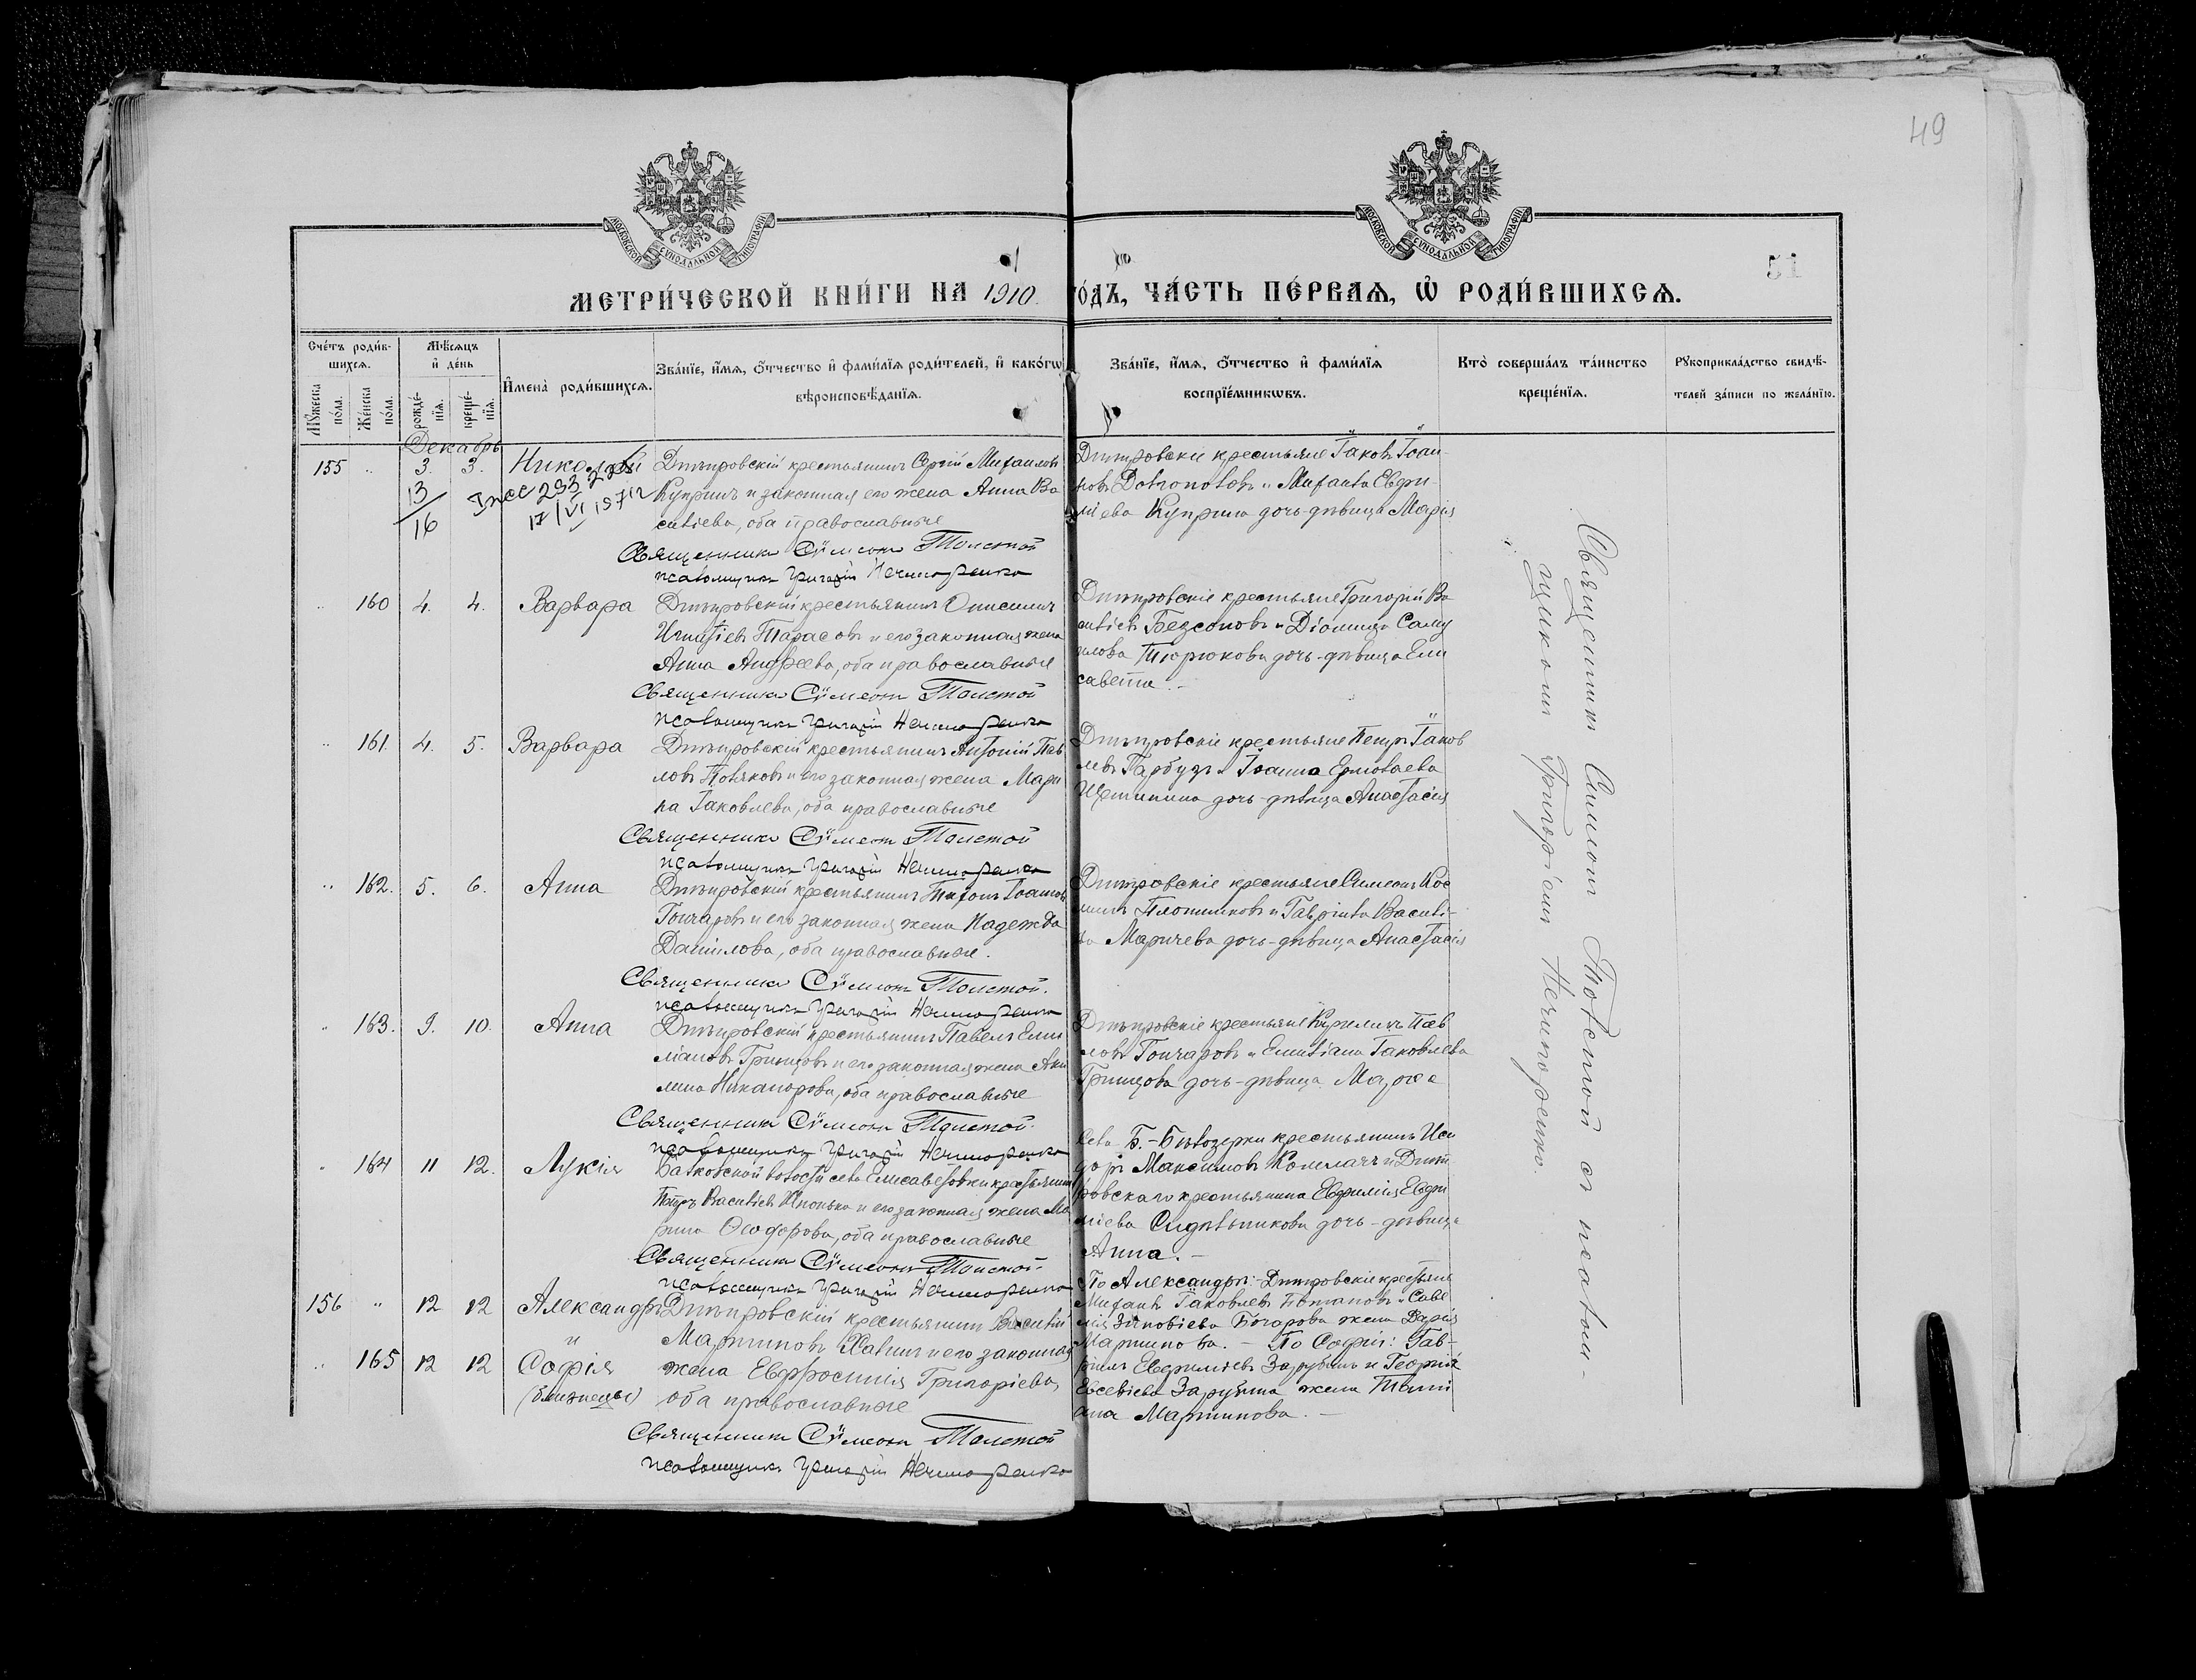 49
51
МОСКОВСКОЙ СУНОДАЛЬНОЙ ТИПОГРАФІИ
МОСКОВСКОЙ СУНОДАЛЬНОЙ ТИПОГРАФІИ
МЕТРИ́ЧЕСКОЙ КНИ́ГИ НА 1910 ГО́ДЪ, ЧА́СТЬ ПЕ́РВАѦ, Ѡ РОДИ́ВШИХСѦ.
Сче́тъ роди́в-
шихсѧ.
Мѹ́жеска по́ла.
Же́нска по́ла.
Мѣ́сѧцъ
и҆ де́нь
рожде́-
нїѧ.
креще́-
нїѧ.
И҆мена̀ роди́вшихсѧ.
Зва́нїе, и҆́мѧ, ѻ҆́тчество и҆ фами́лїѧ роди́телей, и҆ како́гѡ
вѣроисповѣ́данїѧ.
Зва́нїе, и҆́мѧ, ѻ҆́тчество и҆ фами́лїѧ
воспрїе́мникѡвъ.
Кто̀ соверша́лъ та́инство
креще́нїѧ.
Рѹкоприкла́дство свидѣ́-
телей за́писи по жела́нїю.
Декабрь
155 " 3. 3. Николай
13
16
17/VI
Днѣпровскій крестьянинъ Сергій Михаиловъ
Купринъ и законная его жена Анна Ва
сильева, оба православные
Священникъ Сѵмеонъ Толстой
псаломщикъ Григорій Нечипоренко
Днѣпровскіе крестьяне Іаковъ Іоан-
новъ и Михаила Евфи-
міева Куприна дочь-дѣвица Марія
" 160 4. 4. Варвара
Днѣпровскій крестьянинъ Онисимъ
Игнатіевъ Тарасовъ и его законная жена
Анна Андреева, оба православные
Священникъ Сѵмеонъ Толстой
псаломщикъ Григорій Нечипоренко
Днѣпровскіе крестьяне Григорій Ва
сильевъ Безсоновъ и Діомида Саму
илова Тюрюкова дочь-дѣвица Ели
савета.-
" 161. 4. 5. Варвара
Днѣпровскій крестьянинъ Антоній Пав
ловъ и его законная жена Мари
на Іаковлева, оба православные
Священникъ Сѵмеонъ Толстой
псаломщикъ Григорій Нечипоренко
Днѣпровскіе крестьяне Петръ Іаков
левъ Гарбузъ и Іоанна Ермолаева
Щетинина дочь-дѣвица Анастасія
" 162. 5. 6. Анна
Днѣпровскій крестьянинъ Тихонъ Іоанновъ
Гончаровъ и его законная жена Надежда
Даниилова, оба православные.
Священникъ Сѵмеонъ Толстой.
псаломщикъ Григорій Нечипоренко
Днѣпровскіе крестьяне Симеонъ Кос
минъ Плотниковъ и Гавріила Василь-
ва Маричева дочь-дѣвица Анастасія
" 163. 9. 10. Анна
Днѣпровскій крестьянинъ Павелъ Емил
ліановъ Гринцовъ и его законная жена Аки
лина Никанорова, оба православные
Священникъ Сѵмеонъ Толстой.
псаломщикъ Григорій Нечипоренко
Днѣпровскіе крестьяне Кириллъ Пав
ловъ Гончаровъ и Емиліана Іаковлева
Гринцова дочь-дѣвица Марфа
" 164 11 12. Лукія
волости села Елисаветовки крестьянинъ
Петръ Васильевъ и его законная жена Ма
рина Ѳеодорова, оба православные
Священникъ Сѵмеонъ Толстой
псаломщикъ Григорій Нечипоренко
Села Б.-Бѣлозерки крестьянинъ Иси
доръ Максимовъ и Днѣп
ровскаго крестьянина Евфимія Евфи
міева Сидѣльникова дочь-дѣвица
Анна.-
156 " 12 12 Александръ
и
" 165 12 12 Софія
(близнецы)
Днѣпровскій крестьянинъ Василій
Мартиновъ Халинъ и его законная
жена Евфросинія Григоріева,
оба православные
Священникъ Сѵмеонъ Толстой
псаломщикъ Григорій Нечипоренко
По Александрѣ:-Днѣпровскіе крестьяне
Михаилъ Іаковлевъ Потаповъ и Саве
лія Зиновіева жена Дарія
Мартинова.- По Софіи: Гав-
ріилъ Евфиміевъ Зарубинъ и Георгія
Евсевіева Зарубина жена Тати
ана Мартинова.-
Священникъ Симеонъ Толстой съ псалом-
щикомъ Григоріемъ Нечипоренко.